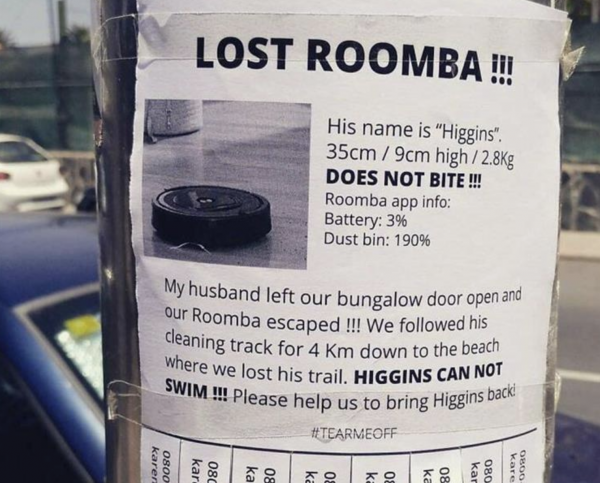 LOST ROOMBA !!!
His name is “Higgins”.
35cm / 9cm high / 2.8Kg
DOES NOT BITE !!!
Roomba app info:
Battery: 3%
Dust bin: 190%
My husband left our bungalow door open and
our Roomba escaped !!! We followed his
cleaning track for 4 Km down to the beach
where we lost his trail. HIGGINS CAN NOT
SWIM !!! Please help us to bring Higgins back!
#TEARMEOFF